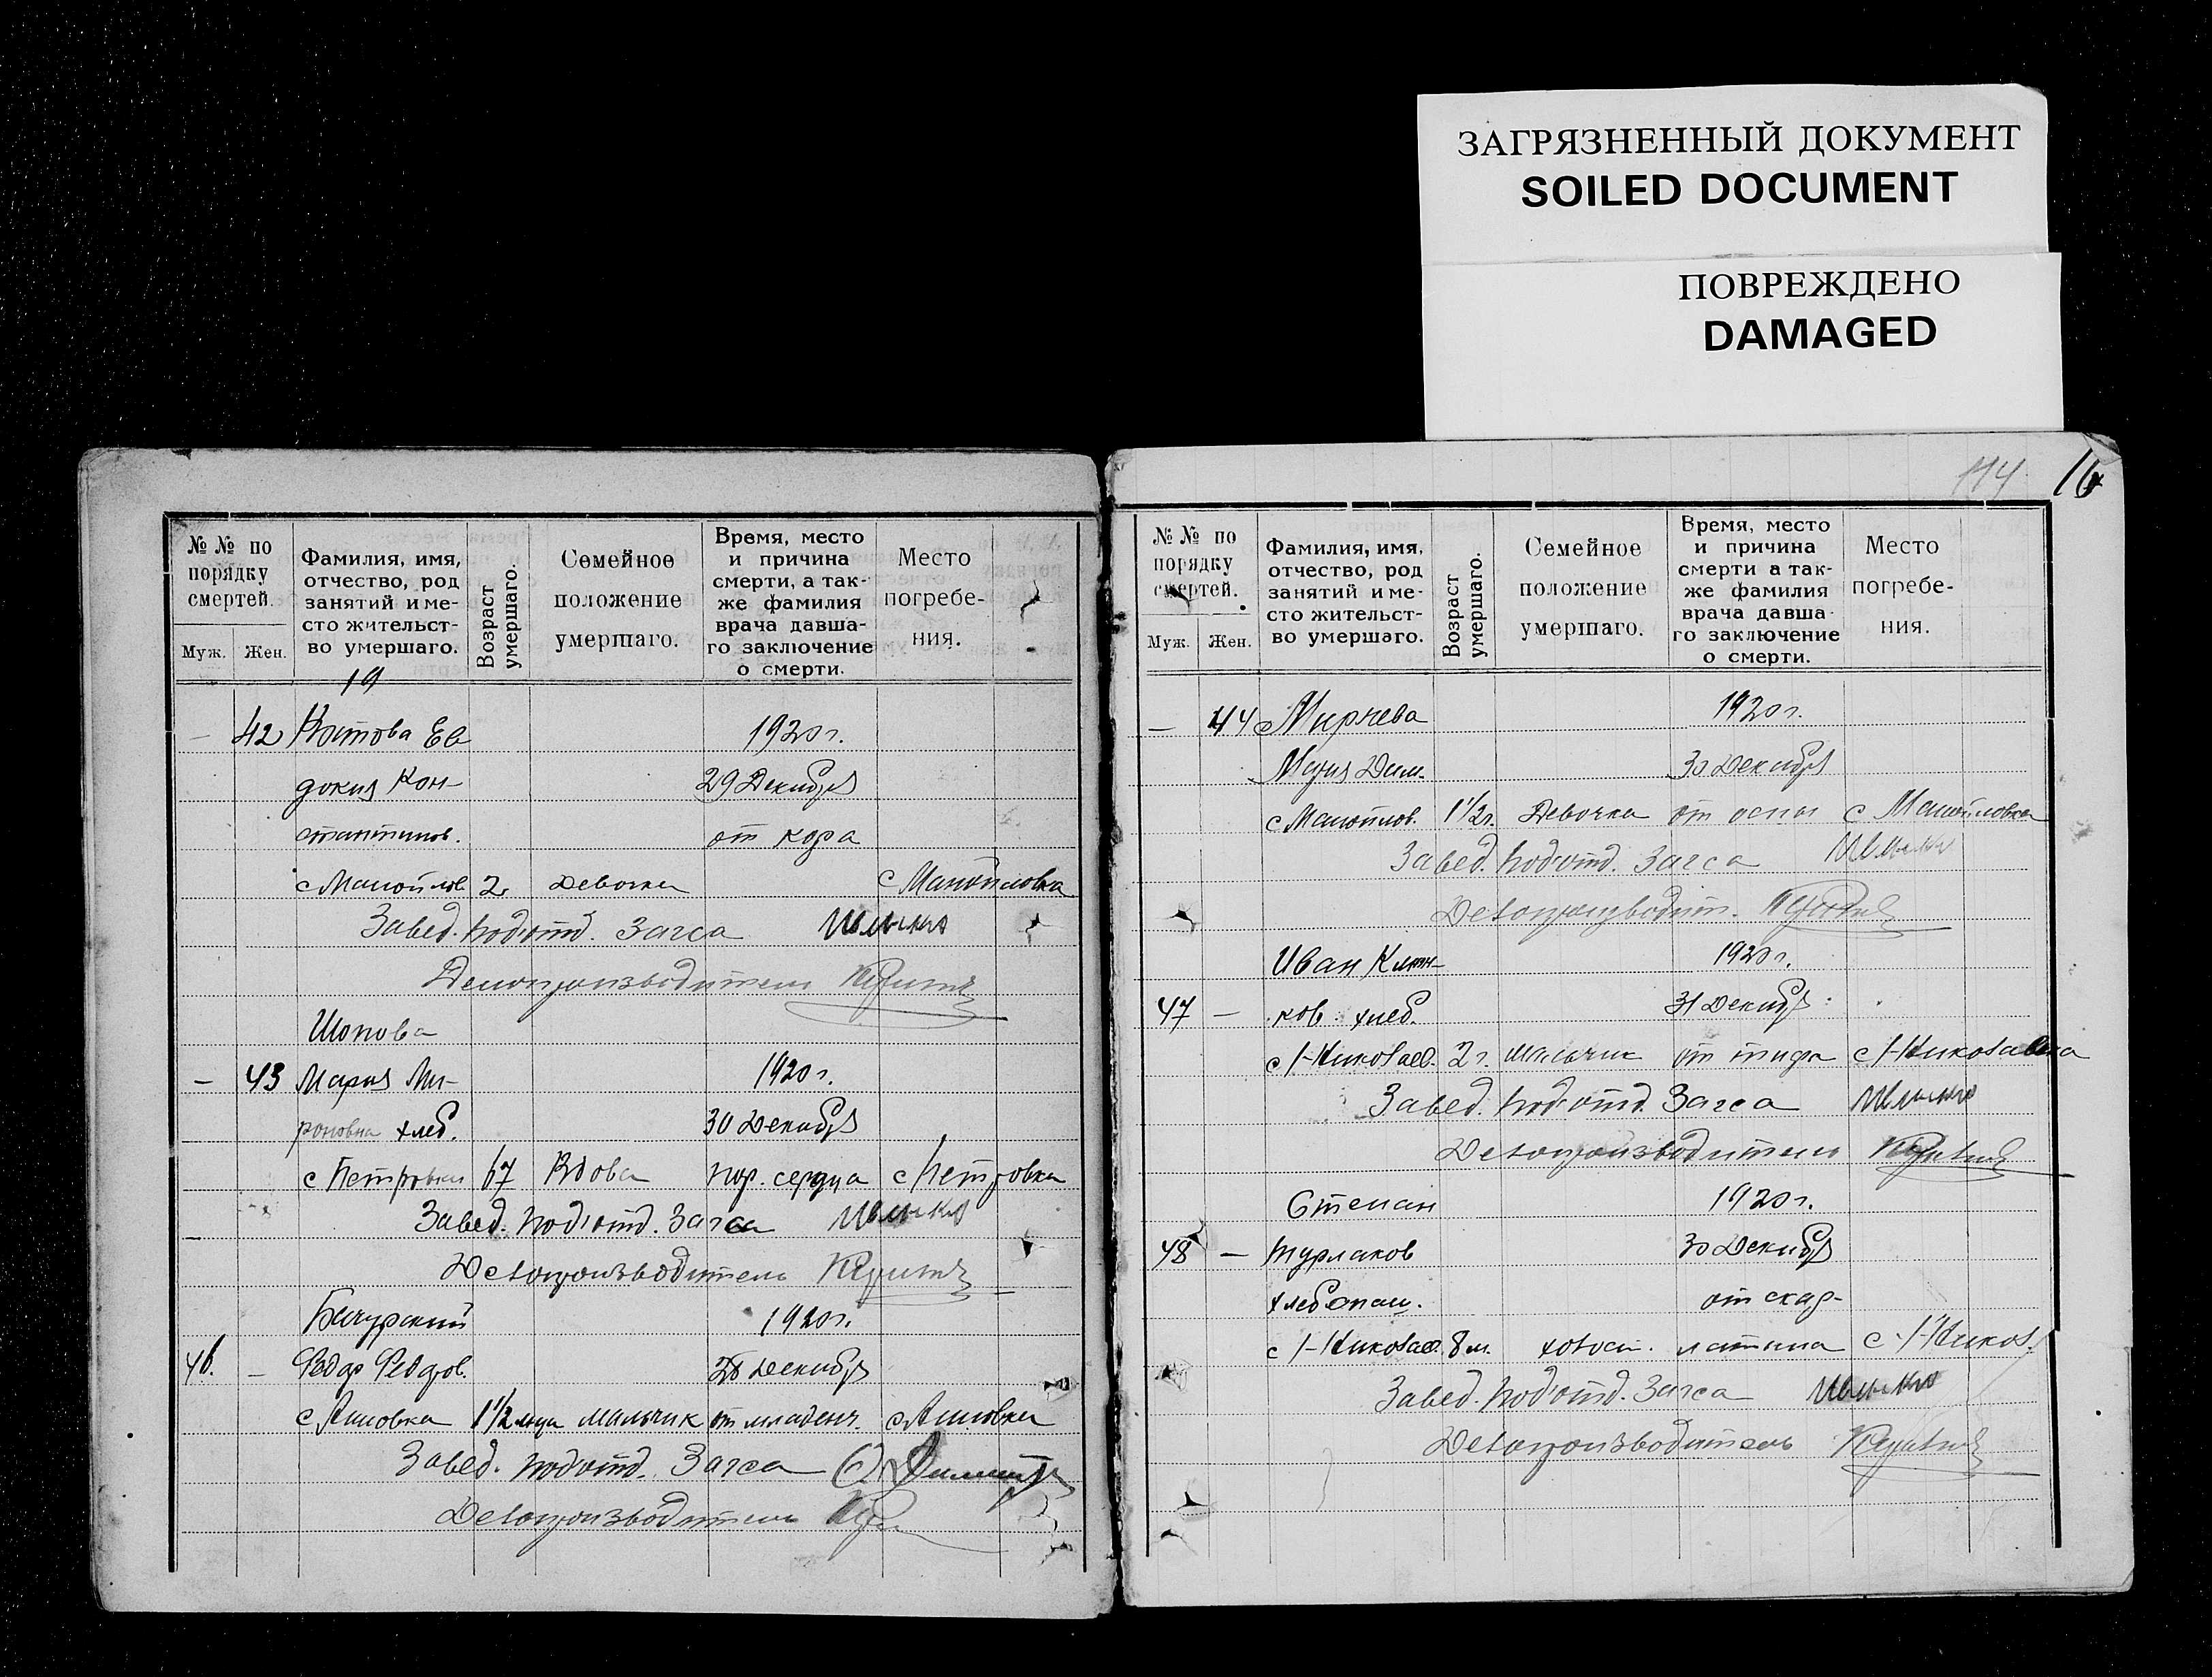 ЗАГРЯЗНЕННЫЙ ДОКУМЕНТ
SOILED DOCUMENT
ПОВРЕЖДЕНО
DAMAGED
№ № по порядку смертей.
Муж. Жен.
Фамилия, имя, отчество, род занятий и место жительство умершаго.
Возраст умершаго.
Семейное положение умершаго.
Время, место и причина смерти, а также фамилия врача давшаго заключение о смерти.
Место погребения.
19
— 42 Котова Ев 1920 г.
докия Кон- 29 Декабря
стантинов. от кора
с Манойлов 2 Девочка с Манойловка
Завед. под'отд. Загса
Делопроизводитель
Шопова
— 43 Мария Ми- 1920 г.
роновна хлеб. 30 Декабря
с Петровка 67 Вдова пор. сердца с Петровка
Завед. под'отд. Загса
Делопроизводитель
Бачурский 1920 г.
46. — Федор Федоров. 28 Декабря
1 1/2 м-ца мальчик от младенч.
Завед. под'отд. Загса
Делопроизводитель
114 16
№ № по порядку смертей.
Муж. Жен.
Фамилия, имя, отчество, род занятий и место жительство умершаго.
Возраст умершаго.
Семейное положение умершаго.
Время, место и причина смерти а также фамилия врача давшаго заключение о смерти.
Место погребения.
— 44 Мирчева 1920 г.
Мария Дим. 30 Декабря
с Манойлов. 1 1/2 г. Девочка от оспы с Манойловка
Завед. под'отд. Загса
Делопроизводит.
Иван Клин- 1920 г.
47 — ков хлеб. 31 Декабр
с Н-Николаев. 2 г. мальчик от тифа с Н-Николаевка
Завед. под'отд. Загса
Делопроизводитель
Степан 1920 г.
48 — Турлаков 30 Декабря
хлебопаш. от скар-
с Н-Николаев. 8 м. холост. латина с Н-Никол.
Завед. под'отд. Загса
Делопроизводитель